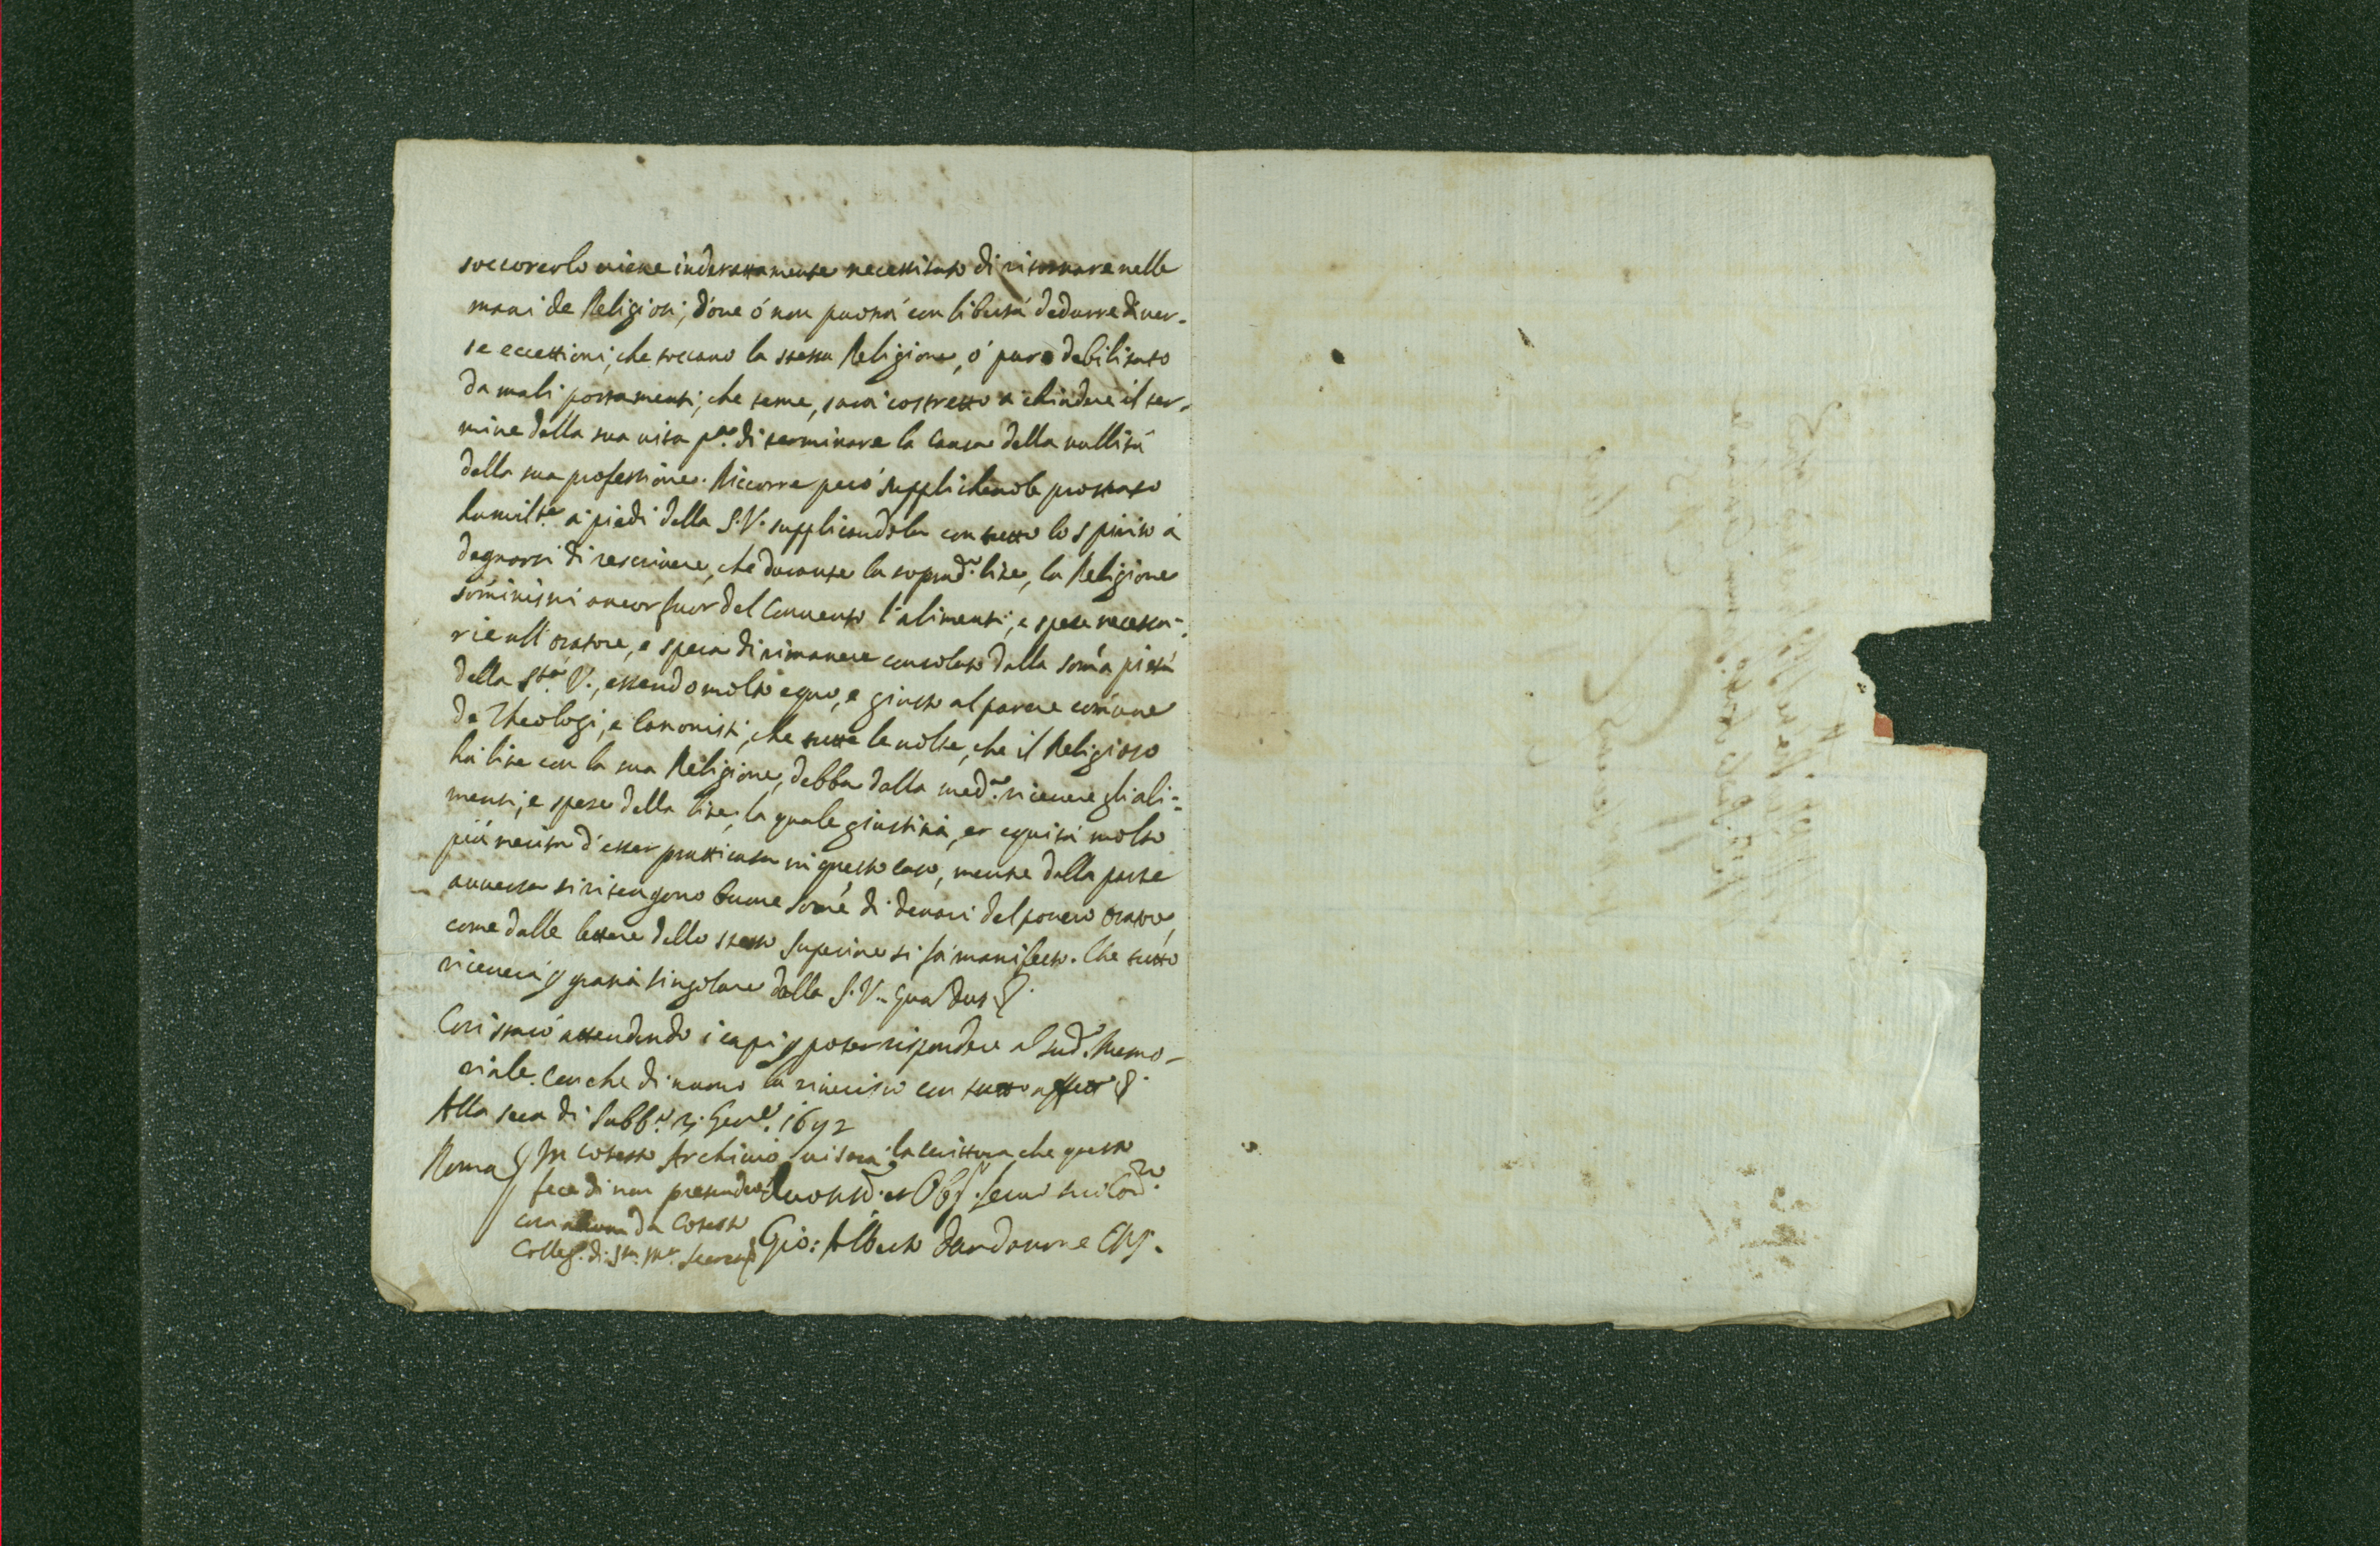 soccorerlo viene inderettamente necessitato di ritornare nelle
mani de Religiosi; dove ò non puotrà con libertà dedurre diver-
se eccettioni, che toccano la stessa Religione, ò pure debilitato
da mali portamenti, che teme, sarà costretto à chiudere il ter-
mine della sua vita p.ª di terminare la Causa della nullità
della sua professione. Riccorre però supplichevole prostrato
humilt.e a' piedi della S.V. supplicandola con tutto lo spirito à
degnarsi di rescrivere, che durante la soprad.ª lite, la Religione
sõministri ancor fuor del Convento l'alimenti, e spese necessa-
rie all'oratore, e spera di rimanere consolato dalla som̃a pietà
della S.tà V., essendo molto equo, e giusto al parere com̃une
de Theologi, e Canonisti, che tutte le volte, che il Religioso
hà lite con la sua Religione, debba dalla med.ª ricevere gli ali=
menti, e spese della lite; la quale giustitia, et equità molto
più merita d'esser pratticata in questo caso, mentre dalla parte
avversa si ritengono buone som̃e di denari del povero oratore,
come dalle lettere dello stesso Superiore si fà manifesto. Che tutto
riceverà p gratia singolare della S.V. Qua Deus &.
Così starò attendendo i capi p poter rispondere al sud.º Memo-
riale. Con che di nuovo la riverisco con tutto affetto &.
Alla sera di Sabb.º Gen.º 1692
Roma In cotesto Archivio vi sarà la scrittura che questo
fece di non pretendere
Devotiss.º et Obl. Servo suo Cord.º
cosa alcuna da cotesto
Colleg. di S.ta M.ª
Gio: Alberto Dardanone CRS.